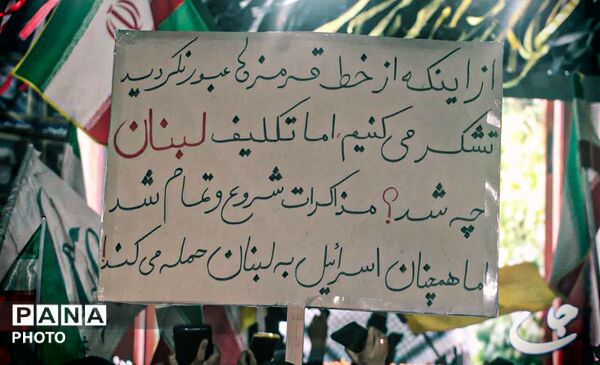 از اینکه از خط قرمزها عبور نکردید
تشکر می‌کنیم، اما تکلیف لبنان
چه شد؟ مذاکرات شروع و تمام شد
اما همچنان اسرائیل به لبنان حمله می‌کند!
PANA
PHOTO